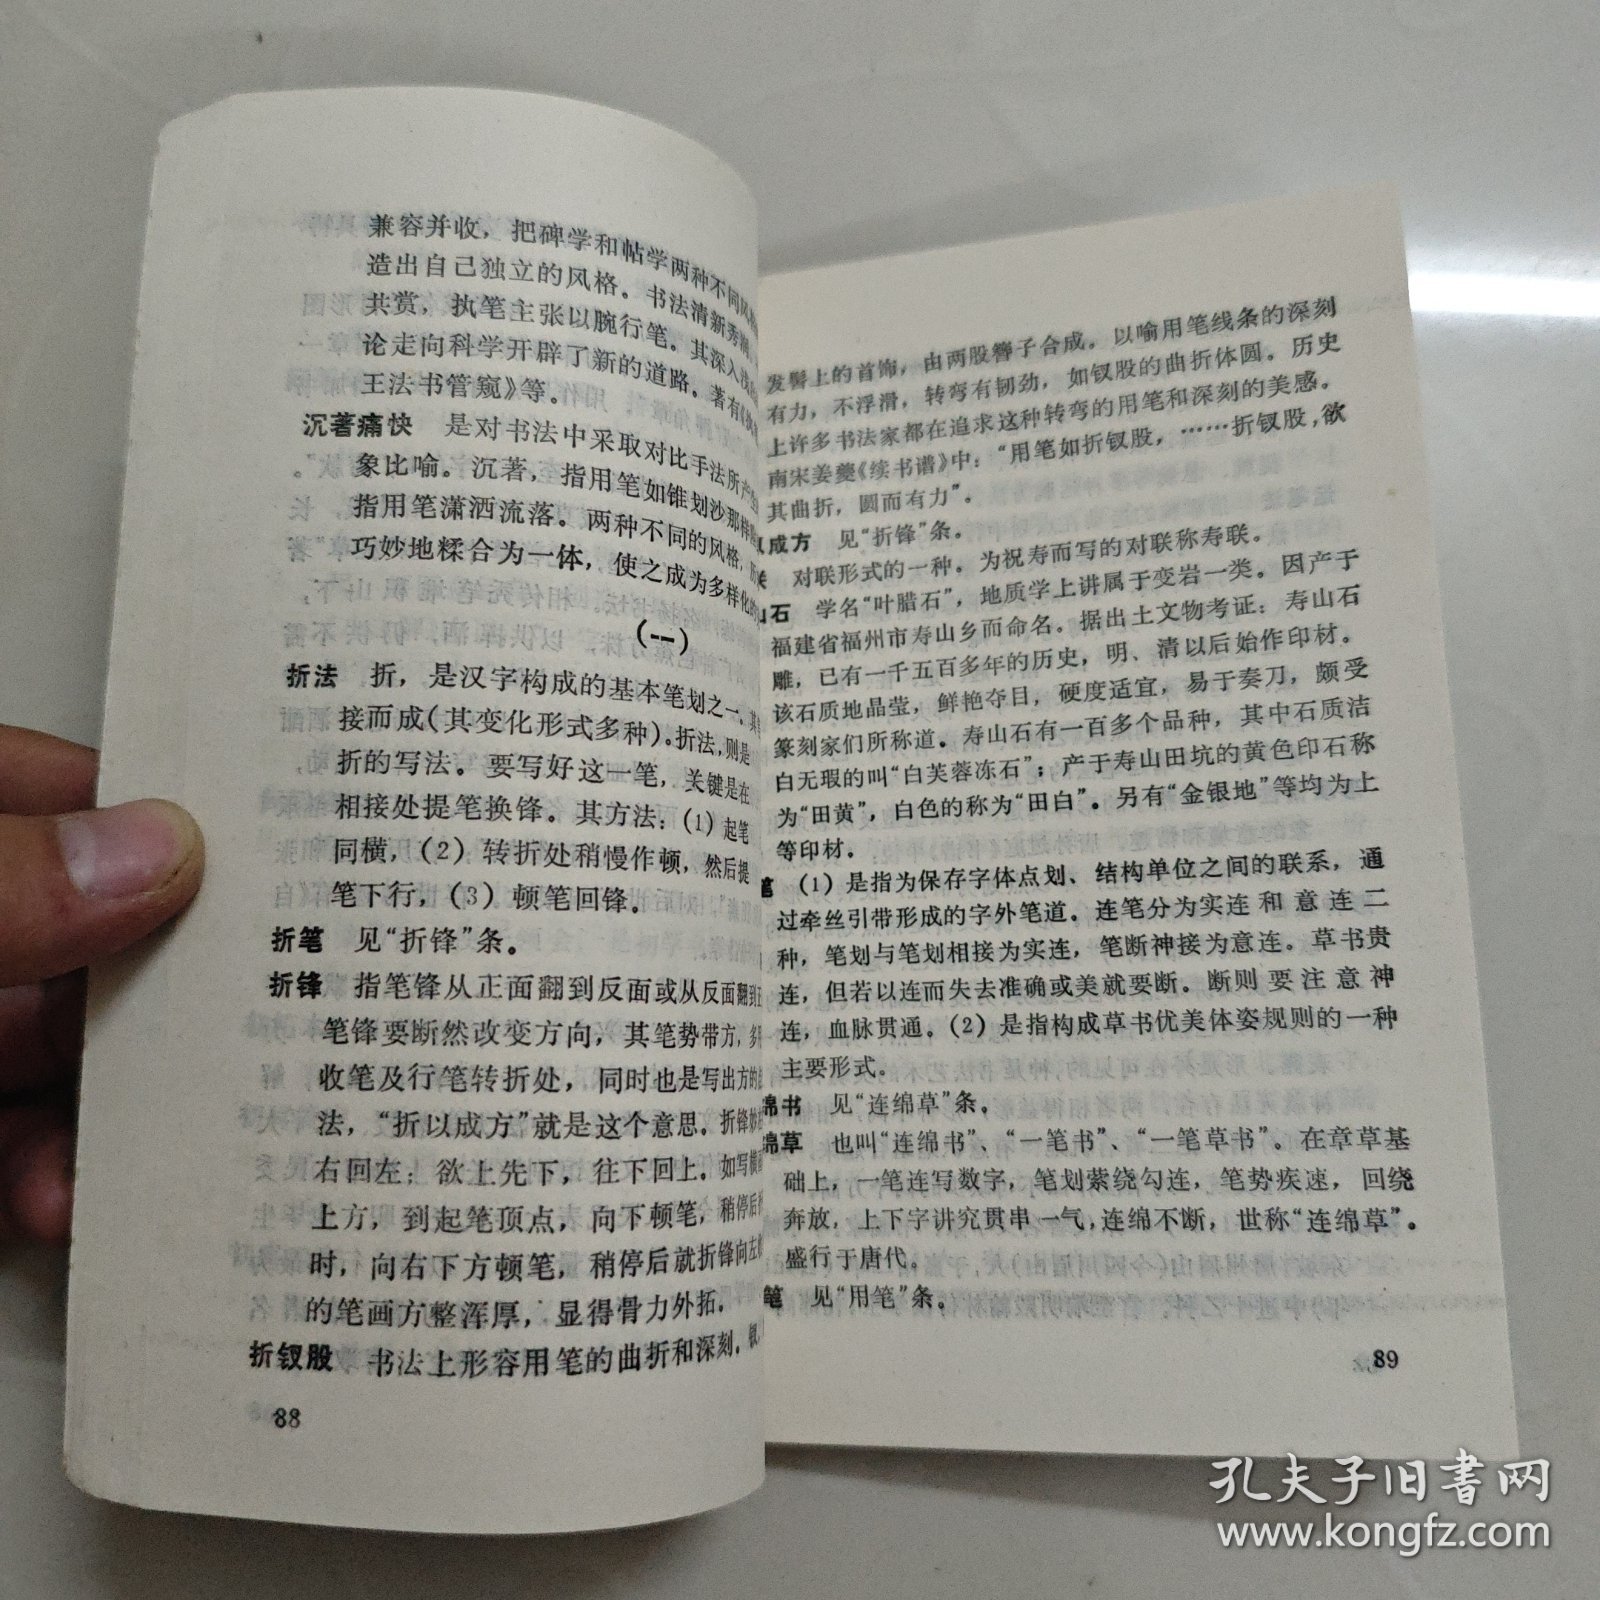 兼容并收，把碑学和帖学两种不同风
造出自己独立的风格。书法清新秀
共赏，执笔主张以腕行笔。其深入浅
论走向科学开辟了新的道路。著有《
王法书管窥》等。
沉著痛快　是对书法中采取对比手法所产生
象比喻。沉著，指用笔如锥划沙那样
指用笔潇洒流落。两种不同的风格，
巧妙地糅合为一体，使之成为多样化的
（一）
折法　折，是汉字构成的基本笔划之一，
接而成（其变化形式多种）。折法，则是
折的写法。要写好这一笔，关键是在
相接处提笔换锋。其方法：（1）起笔
同横，（2）转折处稍慢作顿，然后提
笔下行，（3）顿笔回锋。
折笔　见“折锋”条。
折锋　指笔锋从正面翻到反面或从反面翻到正
笔锋要断然改变方向，其笔势带方，多
收笔及行笔转折处，同时也是写出方的
法，“折以成方”就是这个意思。折锋妙
右回左；欲上先下，往下回上。如写横
上方，到起笔顶点，向下顿笔，稍停后
时，向右下方顿笔，稍停后就折锋向左
的笔画方整浑厚，显得骨力外拓。
折钗股　书法上形容用笔的曲折和深刻。钗，
88
发髻上的首饰，由两股簪子合成。以喻用笔线条的深刻
有力，不浮滑，转弯有韧劲，如钗股的曲折体圆。历史
上许多书法家都在追求这种转弯的用笔和深刻的美感。
南宋姜夔《续书谱》中：“用笔如折钗股，……折钗股，欲
其曲折，圆而有力”。
成方　见“折锋”条。
对联形式的一种。为祝寿而写的对联称寿联。
山石　学名“叶腊石”，地质学上讲属于变岩一类。因产于
福建省福州市寿山乡而命名。据出土文物考证：寿山石
雕，已有一千五百多年的历史，明、清以后始作印材。
该石质地晶莹，鲜艳夺目，硬度适宜，易于奏刀，颇受
篆刻家们所称道。寿山石有一百多个品种，其中石质洁
白无瑕的叫“白芙蓉冻石”；产于寿山田坑的黄色印石称
为“田黄”，白色的称为“田白”。另有“金银地”等均为上
等印材。
（1）是指为保存字体点划、结构单位之间的联系，通
过牵丝引带形成的字外笔道。连笔分为实连和意连二
种，笔划与笔划相接为实连，笔断神接为意连。草书贵
连，但若以连而失去准确或美就要断。断则要注意神
连，血脉贯通。（2）是指构成草书优美体姿规则的一种
主要形式。
绵书　见“连绵草”条。
绵草　也叫“连绵书”、“一笔书”、“一笔草书”。在章草基
础上，一笔连写数字，笔划萦绕勾连，笔势疾速，回绕
奔放，上下字讲究贯串一气，连绵不断，世称“连绵草”。
盛行于唐代。
笔　见“用笔”条。
89
孔夫子旧书网
www.kongfz.com